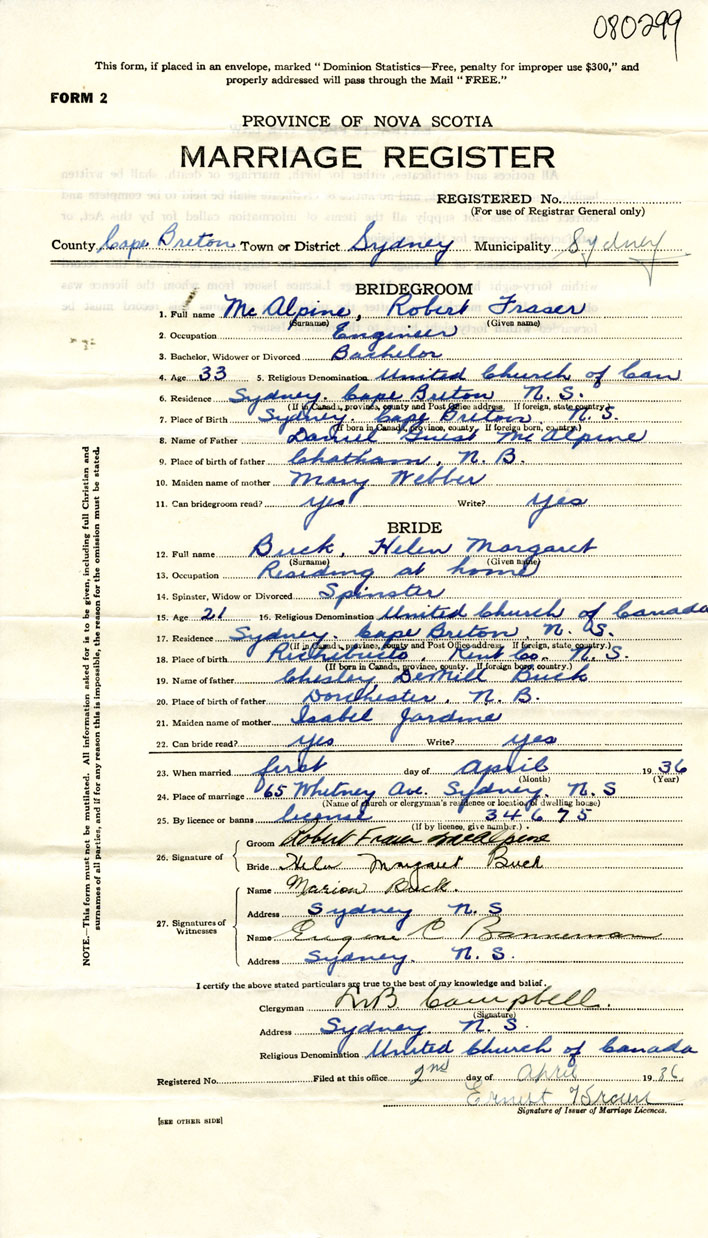 080299
This form, if placed in an envelope, marked "Dominion Statistics—Free, penalty for improper use $300," and
properly addressed will pass through the Mail "FREE."
FORM 2
PROVINCE OF NOVA SCOTIA
MARRIAGE REGISTER
REGISTERED No.
(For use of Registrar General only)
County Cape Breton Town or District Sydney Municipality Sydney
BRIDEGROOM
1. Full name McAlpine, Robert Fraser
(Surname) (Given name)
2. Occupation Engineer
3. Bachelor, Widower or Divorced Bachelor
4. Age 33 5. Religious Denomination United Church of Can
6. Residence Sydney. Cape Breton N. S.
(If in Canada, province, county and Post Office address. If foreign, state country.)
7. Place of Birth Sydney. Cape Breton N. S.
(If born in Canada, province, county. If foreign born, country.)
8. Name of Father Daniel Guest McAlpine
9. Place of birth of father Chatham, N. B.
10. Maiden name of mother Mary Webber
11. Can bridegroom read? yes Write? yes
BRIDE
12. Full name Buck, Helen Margaret
(Surname) (Given name)
13. Occupation Residing at home
14. Spinster, Widow or Divorced Spinster
15. Age 21 16. Religious Denomination United Church of Canada
17. Residence Sydney. Cape Breton, N. S.
(If in Canada, province, county and Post Office address. If foreign, state country.)
18. Place of birth Richibucto, Kent Co. N. S.
(If born in Canada, province, county. If foreign born, country.)
19. Name of father Chesley DeMill Buck
20. Place of birth of father Dorchester, N. B.
21. Maiden name of mother Isabel Jardine
22. Can bride read? yes Write? yes
23. When married first day of April 1936
(Month) (Year)
24. Place of marriage 65 Whitney Ave. Sydney. N. S
(Name of church or clergyman's residence or location of dwelling house)
25. By licence or banns license 34675
(If by licence, give number.)
26. Signature of
Groom Robert Fraser McAlpine
Bride Helen Margaret Buck
27. Signatures of Witnesses
Name Marion Buck.
Address Sydney N. S
Name Eugene C Bannerman
Address Sydney. N. S.
I certify the above stated particulars are true to the best of my knowledge and belief.
Clergyman Campbell.
(Signature)
Address Sydney N. S.
Religious Denomination United Church of Canada
Registered No. Filed at this office 2nd day of April 1936
Ernest Brown
Signature of Issuer of Marriage Licences.
[SEE OTHER SIDE]
NOTE.—This form must not be mutilated. All information asked for is to be given, including full Christian and
surnames of all parties, and if for any reason this is impossible, the reason for the omission must be stated.